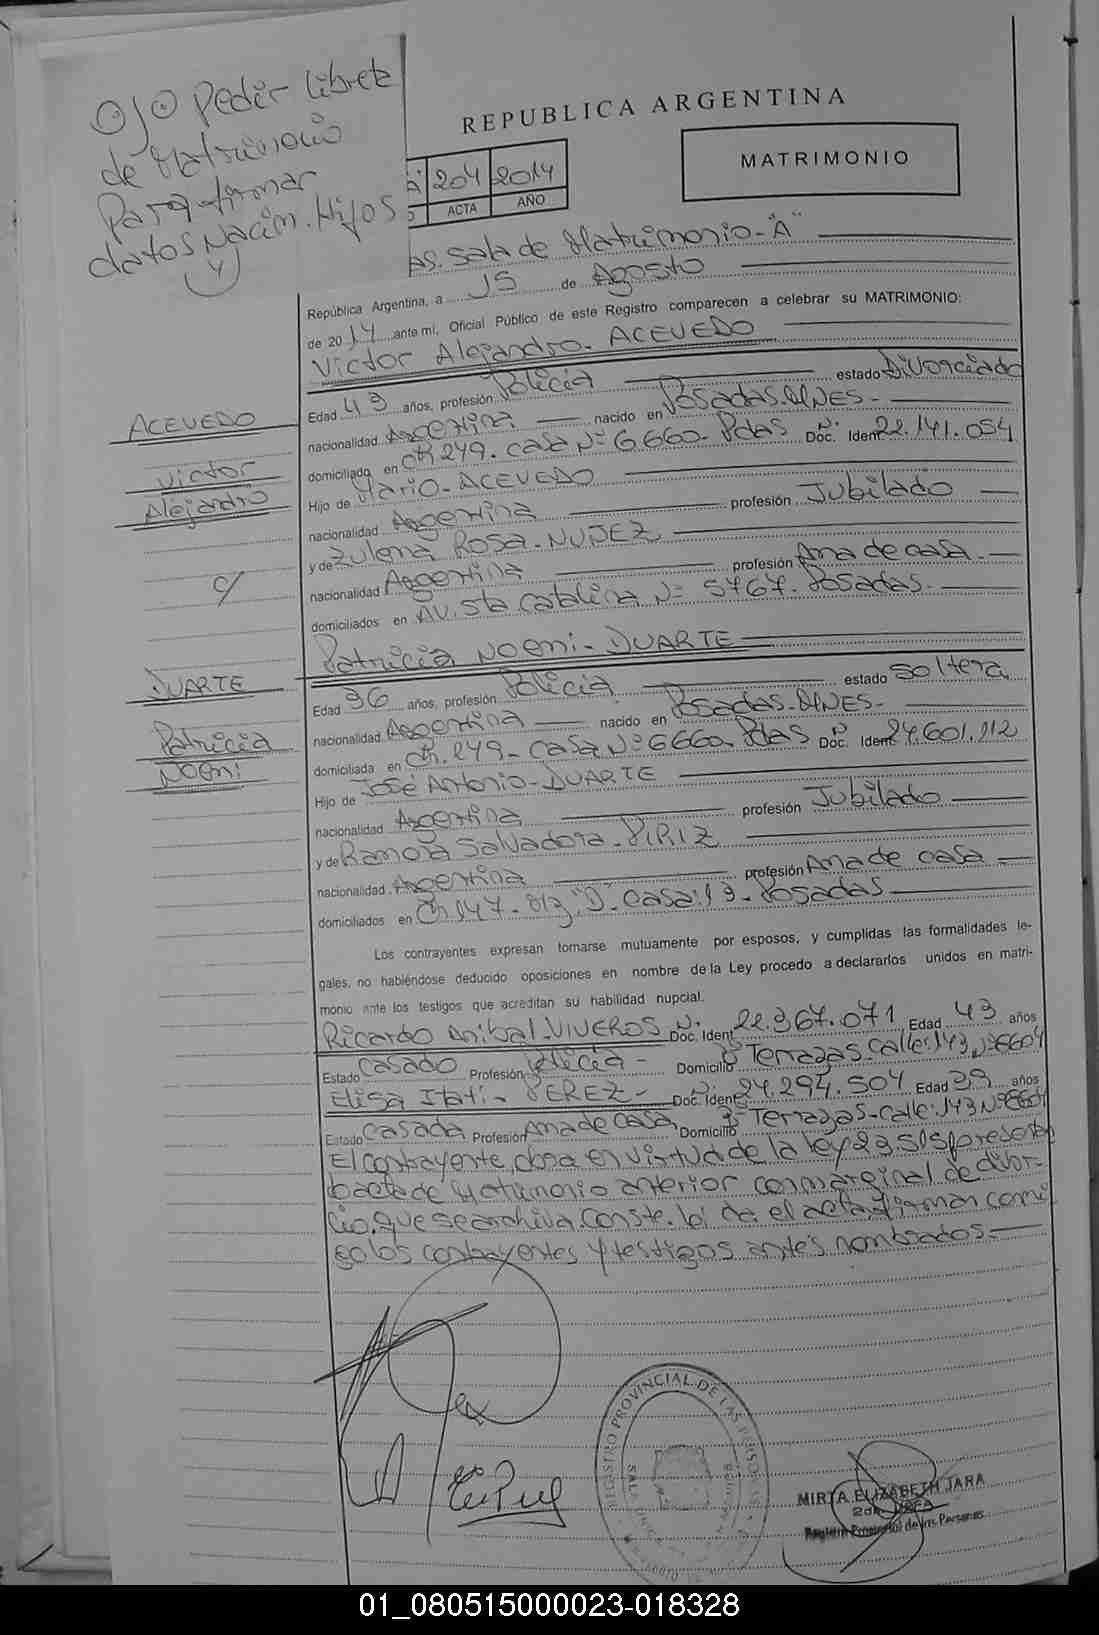 OJO Pedir Libreta
de Matrimonio
Para firmar
datos Nacim. Hijos
REPUBLICA ARGENTINA
MATRIMONIO
204 2014
ACTA AÑO
As. Sala de Matrimonio-"A"
República Argentina, a 15 de Agosto
de 2014 ante mi, Oficial Público de este Registro comparecen a celebrar su MATRIMONIO:
Victor Alejandro- ACEVEDO
Edad 43 años, profesión Policia estado Divorciado
nacionalidad Argentina nacido en Posadas-MNES-
domiciliado en Ch 249. casa Nº 6660- Pdas Doc. Ident. 22.141.054
Hijo de Mario- ACEVEDO
nacionalidad Argentina profesión Jubilado
y de Zulema Rosa- NUÑEZ
nacionalidad Argentina profesión Ama de casa-
domiciliados en AV. Sta Catalina Nº 5767- Posadas-
ACEVEDO
Victor
Alejandro
c/
Patricia Noemi- DUARTE
Edad 36 años, profesión Policia estado Soltera
nacionalidad Argentina nacido en Posadas-MNES-
domiciliada en Ch. 249- casa Nº 6660- Pdas Doc. Ident.
Hijo de José Antonio- DUARTE
nacionalidad Argentina profesión Jubilado
y de Ramona Salvadora- PIRIZ
nacionalidad Argentina profesión Ama de casa
domiciliados en Ch 147- Mz. "D"- Casa: 13- Posadas
DUARTE
Patricia
Noemi
Los contrayentes expresan tomarse mutuamente por esposos, y cumplidas las formalidades le-
gales, no habiéndose deducido oposiciones en nombre de la Ley procedo a declararlos unidos en matri-
monio ante los testigos que acreditan su habilidad nupcial.
Ricardo Anibal- VIVEROS Doc. Ident. 22.367.071 Edad 43 años
Estado casado Profesión Policia- Domicilio Terrazas- Calle: 143 Nº 6604
Elisa Itati- PEREZ- Doc. Ident. 24.294.504 Edad 39 años
Estado Casada Profesión Ama de casa Domicilio Terrazas- Calle: 143 Nº 6604
El contrayente, obra en virtud de la ley 23.515 presenta
acta de Matrimonio anterior con marginal de divor-
cio, que se archiva. Conste. leida el acta, firman conmi
go los contrayentes y testigos antes nombrados.-
REGISTRO PROVINCIAL DE LAS PERSONAS
MIRTA ELIZABETH JARA
2da. JEFA
Registro Provincial de las Personas
01_080515000023-018328